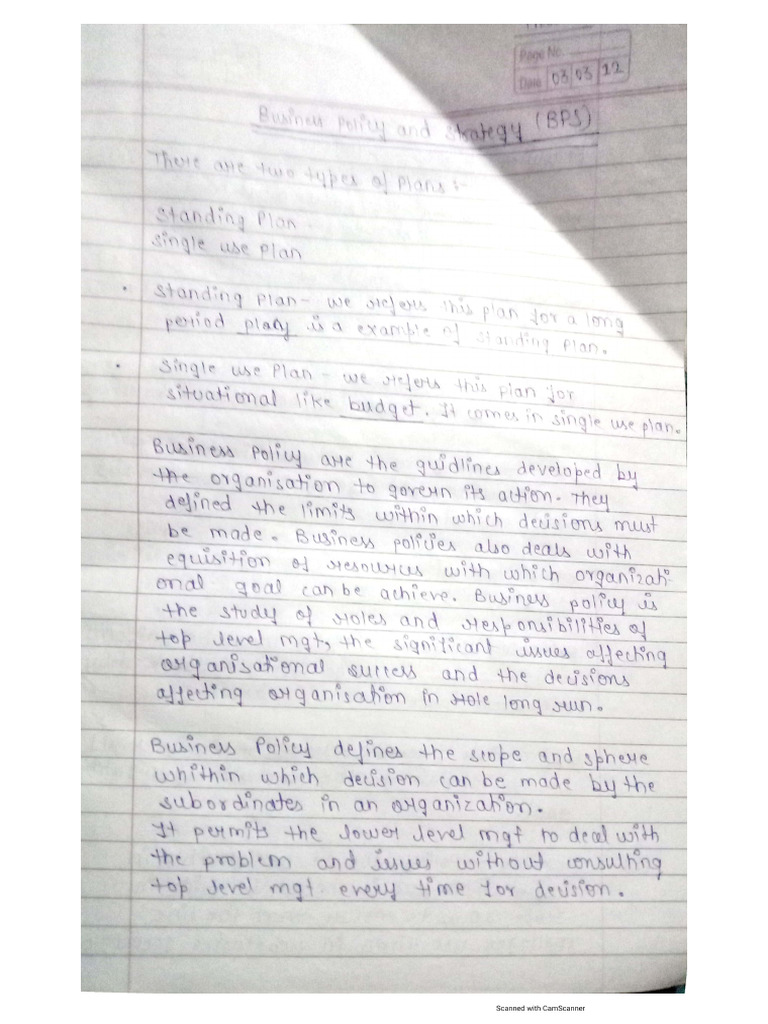 Page No.
Date 03 03 22
Business Policy and Strategy (BPS)
There are two types of Plans :-
Standing Plan
Single use Plan
• Standing Plan - we refers this plan for a long
period is a example of Standing Plan.
• Single use Plan - we refers this plan for
situational like budget. It comes in single use plan.
Business Policy are the guidlines developed by
the organisation to govern its action. They
defined the limits within which decisions must
be made. Business policies also deals with
equisition of resources with which organizati-
onal goal can be achieve. Business policy is
the study of roles and responsibilities of
top level mgt, the significant issues affecting
organisational success and the decisions
affecting organisation in role long run.
Business Policy defines the scope and sphere
whithin which decision can be made by the
subordinates in an organization.
It permits the lower level mgt to deal with
the problem and issues without consulting
top level mgt every time for decision.
Scanned with CamScanner